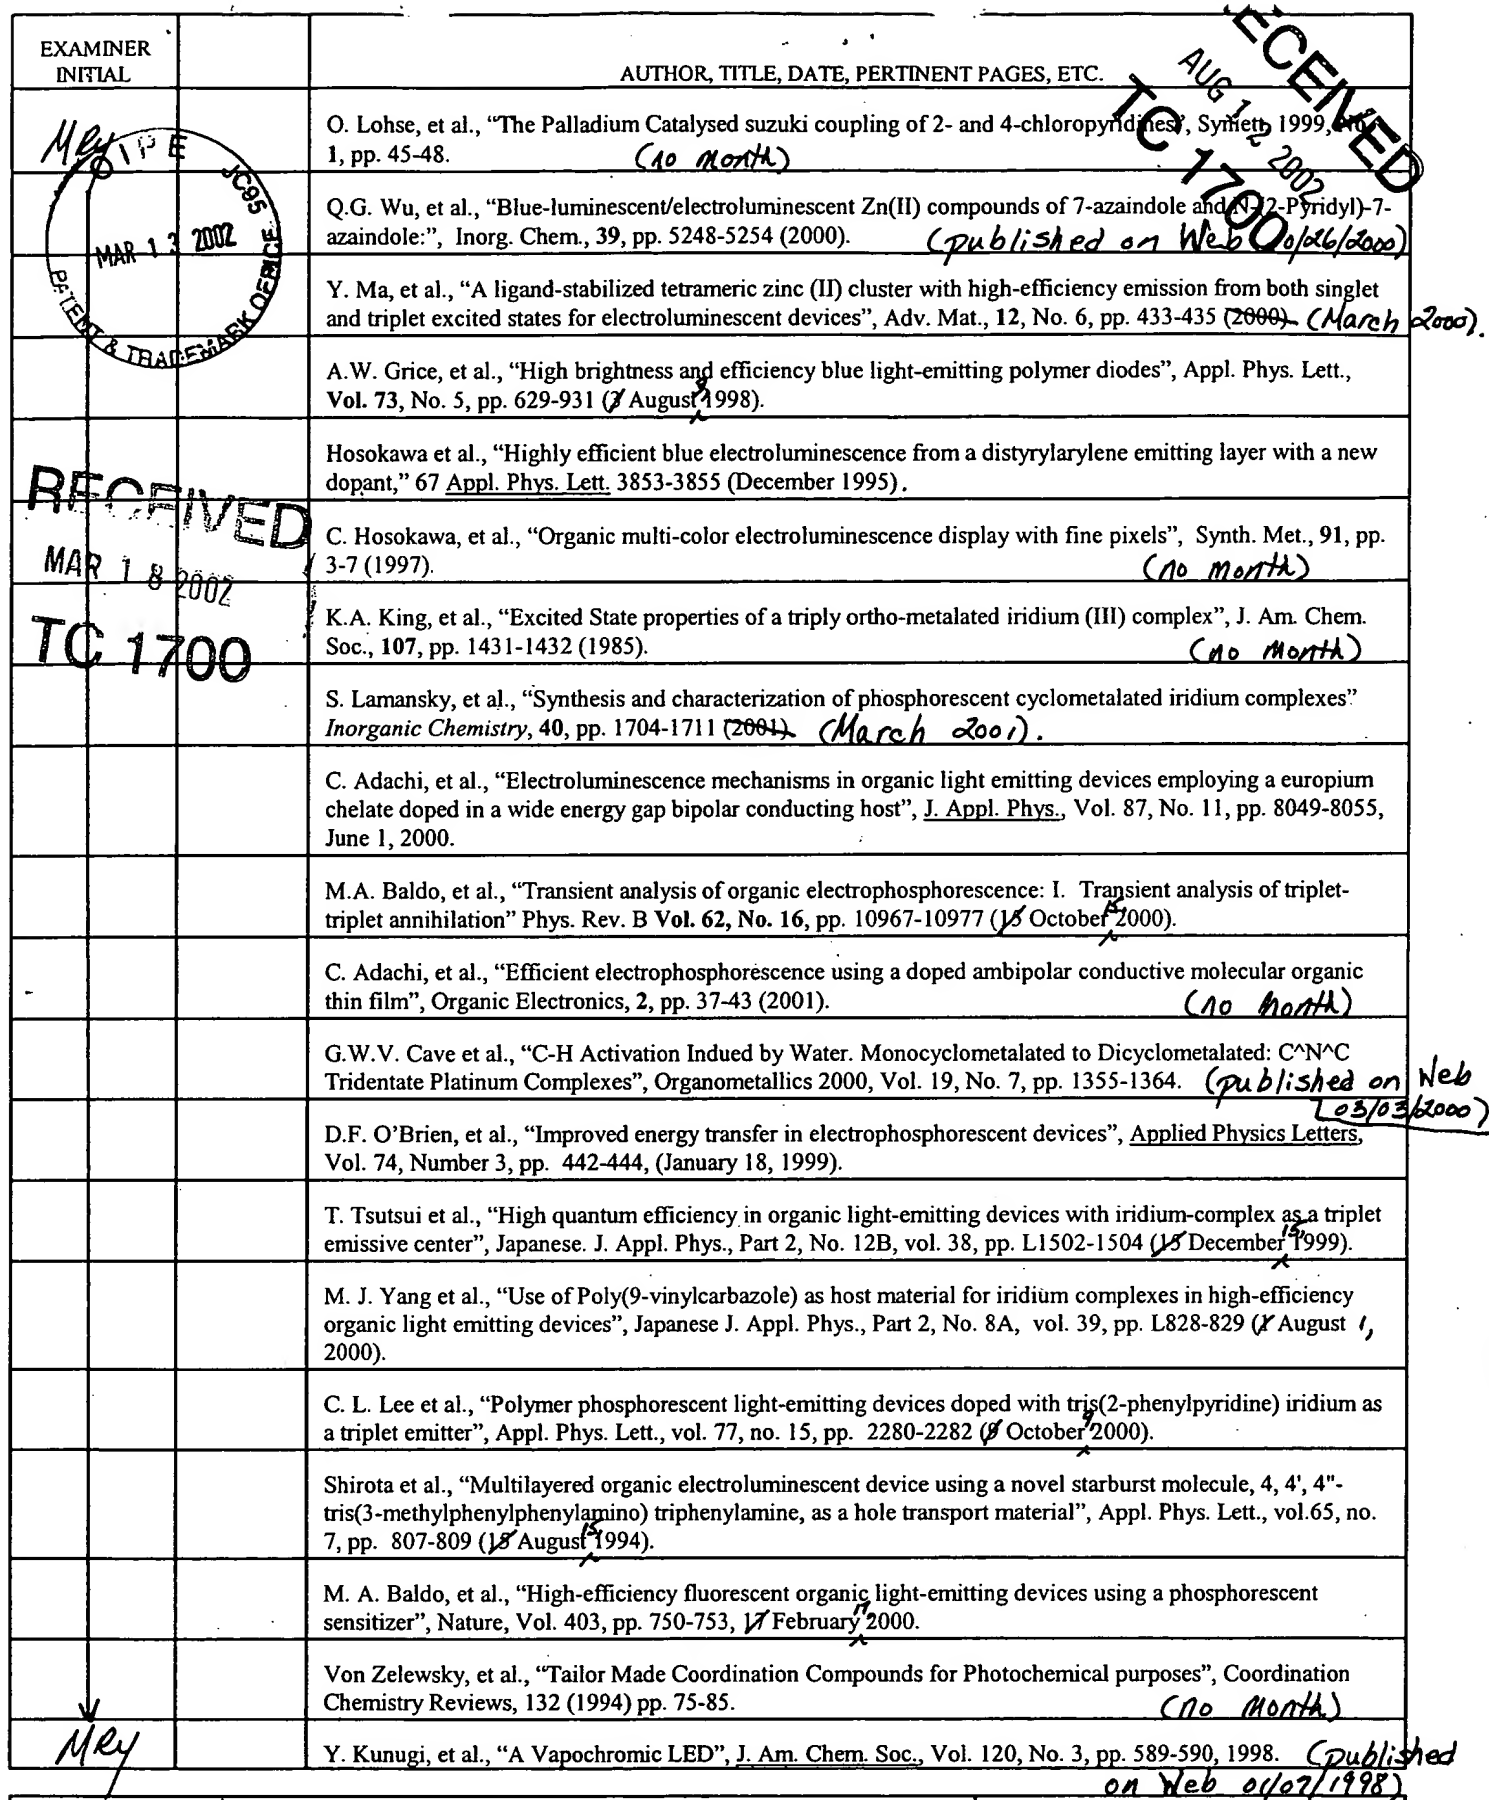 EXAMINER
INITIAL
AUTHOR, TITLE, DATE, PERTINENT PAGES, ETC.
AUG 12 2002
TC 1700
MRy
O I P E JC95
MAR 13 2002
PATENT & TRADEMARK OFFICE
O. Lohse, et al., “The Palladium Catalysed suzuki coupling of 2- and 4-chloropyridines”, Synlett, 1999, No.
1, pp. 45-48. (no month)
Q.G. Wu, et al., “Blue-luminescent/electroluminescent Zn(II) compounds of 7-azaindole and N-(2-Pyridyl)-7-
azaindole:”, Inorg. Chem., 39, pp. 5248-5254 (2000). (published on Web 10/26/2000)
Y. Ma, et al., “A ligand-stabilized tetrameric zinc (II) cluster with high-efficiency emission from both singlet
and triplet excited states for electroluminescent devices”, Adv. Mat., 12, No. 6, pp. 433-435 (2000). (March 2000).
A.W. Grice, et al., “High brightness and efficiency blue light-emitting polymer diodes”, Appl. Phys. Lett.,
Vol. 73, No. 5, pp. 629-931 (3 August 1998).
Hosokawa et al., “Highly efficient blue electroluminescence from a distyrylarylene emitting layer with a new
dopant,” 67 Appl. Phys. Lett. 3853-3855 (December 1995).
RECEIVED
MAR 18 2002
TC 1700
C. Hosokawa, et al., “Organic multi-color electroluminescence display with fine pixels”, Synth. Met., 91, pp.
3-7 (1997). (no month)
K.A. King, et al., “Excited State properties of a triply ortho-metalated iridium (III) complex”, J. Am. Chem.
Soc., 107, pp. 1431-1432 (1985). (no month)
S. Lamansky, et al., “Synthesis and characterization of phosphorescent cyclometalated iridium complexes”
Inorganic Chemistry, 40, pp. 1704-1711 (2001). (March 2001).
C. Adachi, et al., “Electroluminescence mechanisms in organic light emitting devices employing a europium
chelate doped in a wide energy gap bipolar conducting host”, J. Appl. Phys., Vol. 87, No. 11, pp. 8049-8055,
June 1, 2000.
M.A. Baldo, et al., “Transient analysis of organic electrophosphorescence: I. Transient analysis of triplet-
triplet annihilation” Phys. Rev. B Vol. 62, No. 16, pp. 10967-10977 (15 October 15, 2000).
C. Adachi, et al., “Efficient electrophosphorescence using a doped ambipolar conductive molecular organic
thin film”, Organic Electronics, 2, pp. 37-43 (2001). (no month)
G.W.V. Cave et al., “C-H Activation Indued by Water. Monocyclometalated to Dicyclometalated: C^N^C
Tridentate Platinum Complexes”, Organometallics 2000, Vol. 19, No. 7, pp. 1355-1364. (published on Web
03/03/2000)
D.F. O’Brien, et al., “Improved energy transfer in electrophosphorescent devices”, Applied Physics Letters,
Vol. 74, Number 3, pp. 442-444, (January 18, 1999).
T. Tsutsui et al., “High quantum efficiency in organic light-emitting devices with iridium-complex as a triplet
emissive center”, Japanese. J. Appl. Phys., Part 2, No. 12B, vol. 38, pp. L1502-1504 (15 December 15, 1999).
M. J. Yang et al., “Use of Poly(9-vinylcarbazole) as host material for iridium complexes in high-efficiency
organic light emitting devices”, Japanese J. Appl. Phys., Part 2, No. 8A, vol. 39, pp. L828-829 (1 August 1,
2000).
C. L. Lee et al., “Polymer phosphorescent light-emitting devices doped with tris(2-phenylpyridine) iridium as
a triplet emitter”, Appl. Phys. Lett., vol. 77, no. 15, pp. 2280-2282 (9 October 9, 2000).
Shirota et al., “Multilayered organic electroluminescent device using a novel starburst molecule, 4, 4', 4"-
tris(3-methylphenylphenylamino) triphenylamine, as a hole transport material”, Appl. Phys. Lett., vol.65, no.
7, pp. 807-809 (15 August 15, 1994).
M. A. Baldo, et al., “High-efficiency fluorescent organic light-emitting devices using a phosphorescent
sensitizer”, Nature, Vol. 403, pp. 750-753, 17 February 17, 2000.
Von Zelewsky, et al., “Tailor Made Coordination Compounds for Photochemical purposes”, Coordination
Chemistry Reviews, 132 (1994) pp. 75-85. (no month)
MRy
Y. Kunugi, et al., “A Vapochromic LED”, J. Am. Chem. Soc., Vol. 120, No. 3, pp. 589-590, 1998. (published
on Web 01/07/1998)